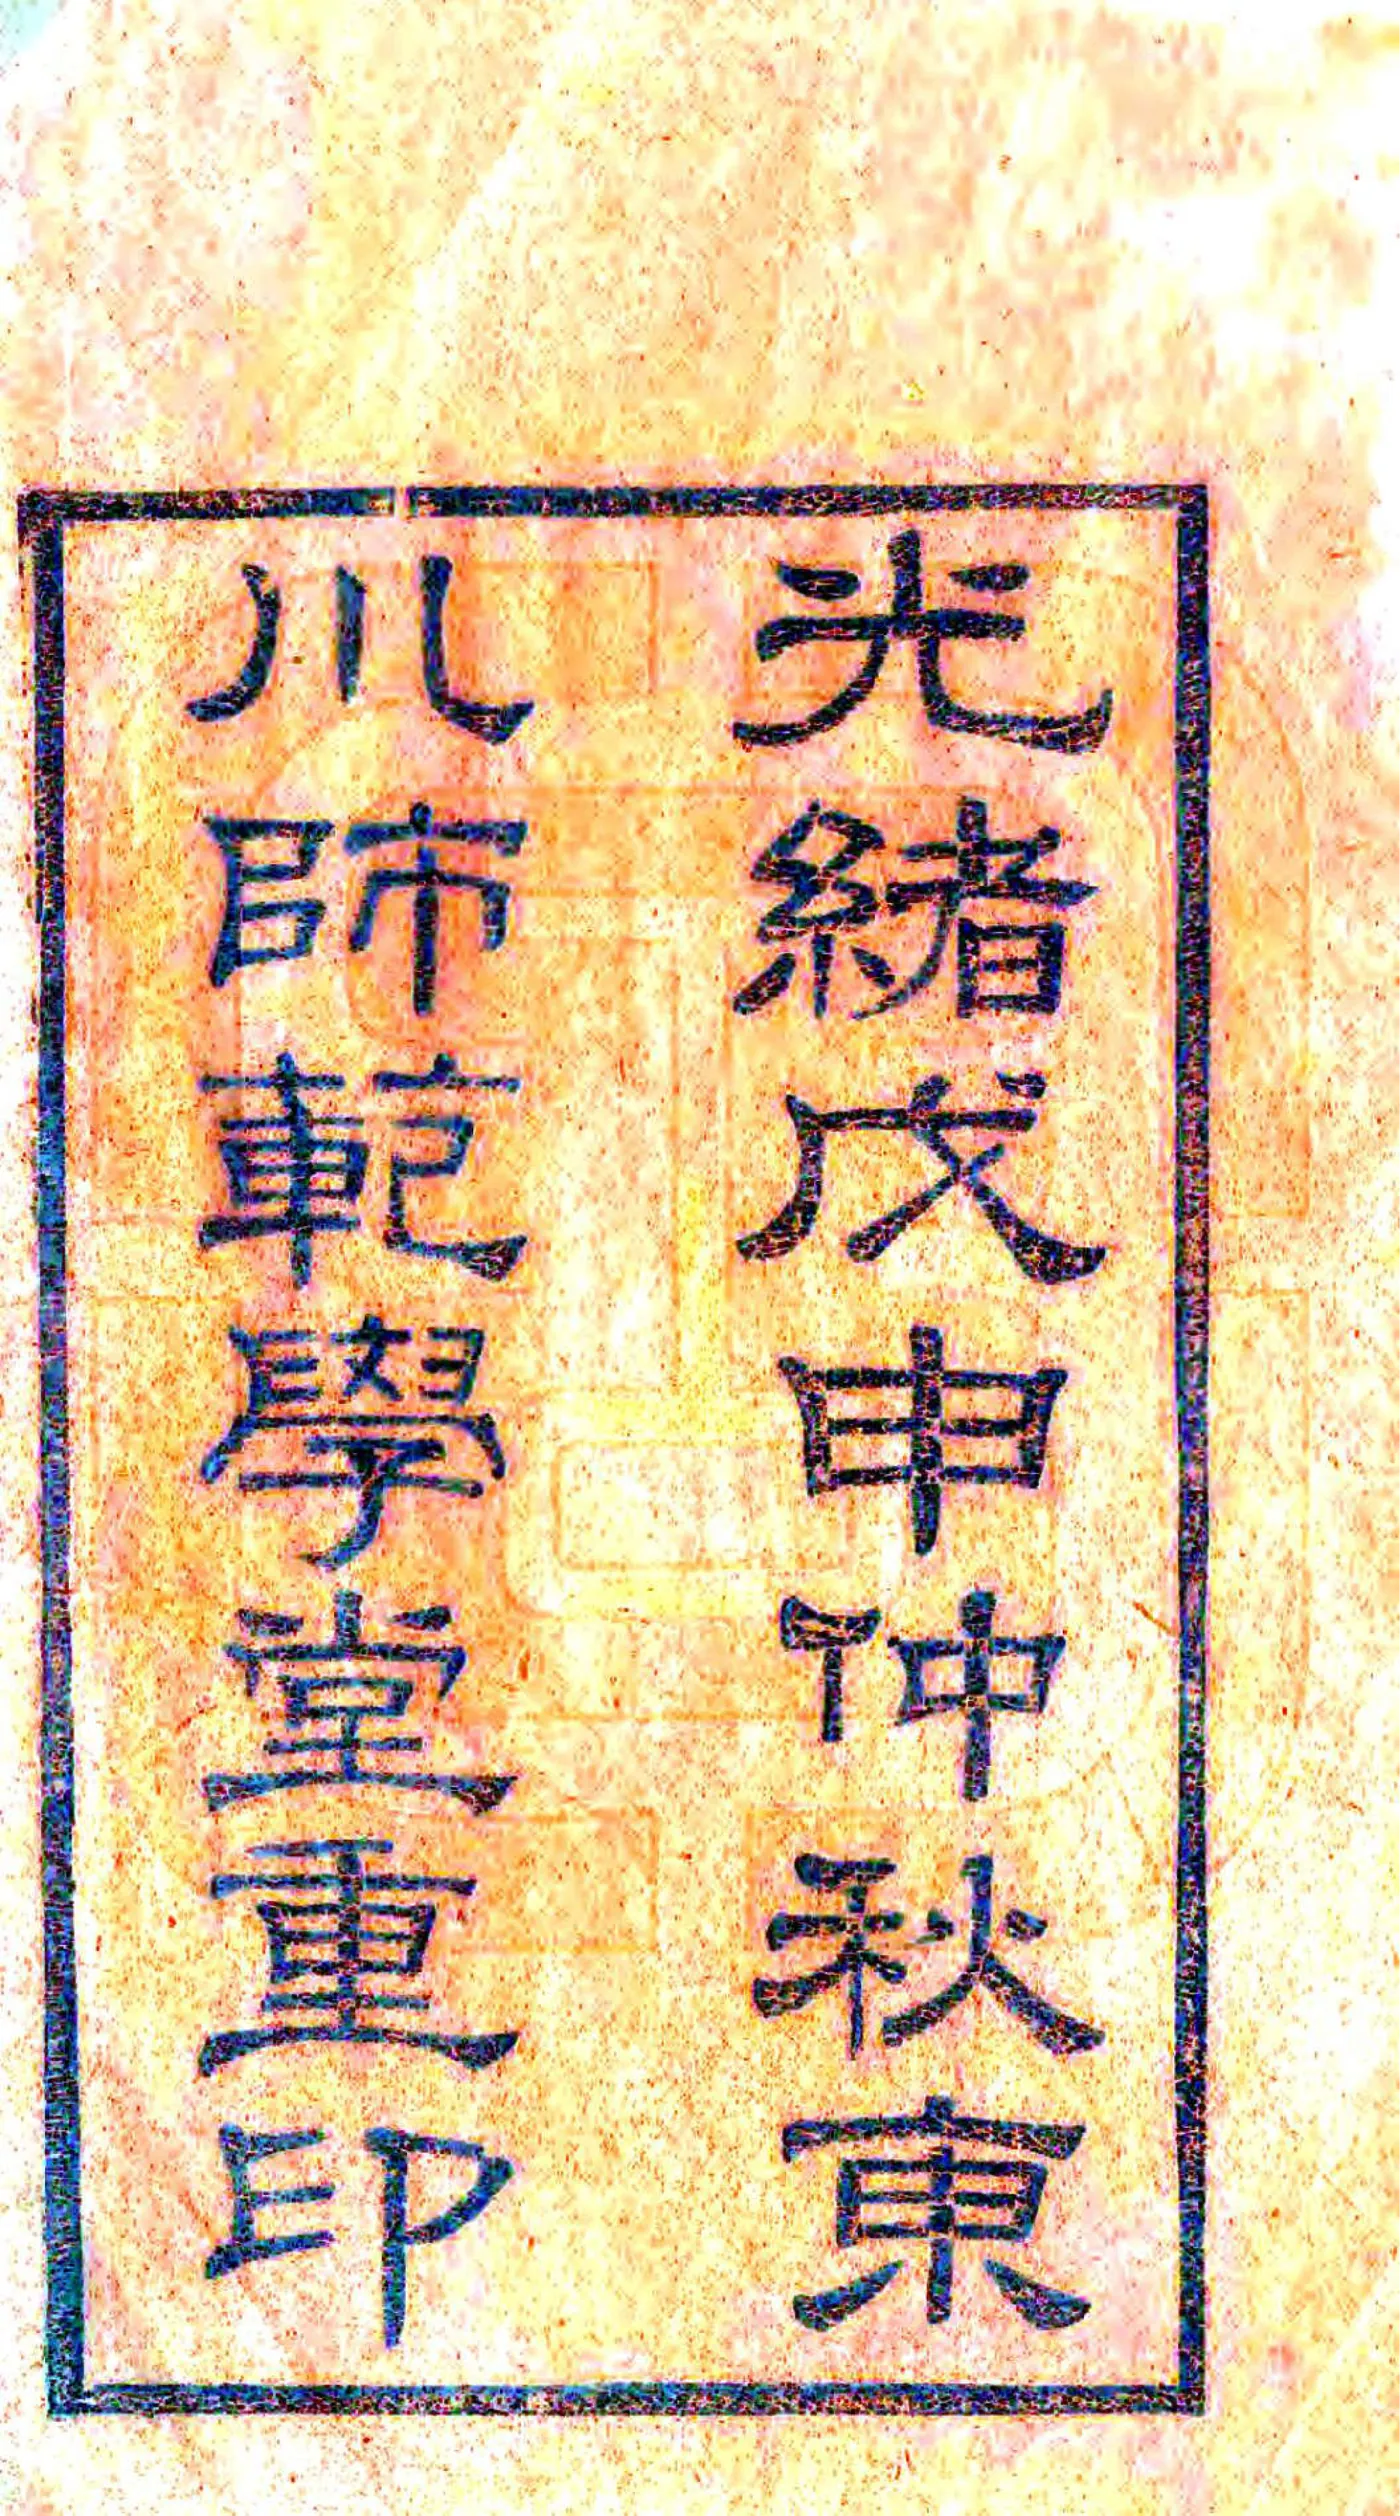 光緒戊申仲秋東
川師範學堂重印